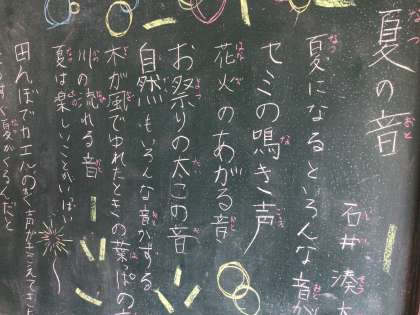 夏の音
石井 湊
夏になるといろんな音が
セミの鳴き声
花火のあがる音
お祭りの太この音
自然もいろんな音がする
木が風でゆれたときの葉っぱの音
川の流れる音
夏は楽しいことがいっぱい
田んぼでカエルのなき声がきこえてきた
もうすぐ夏がくるんだと